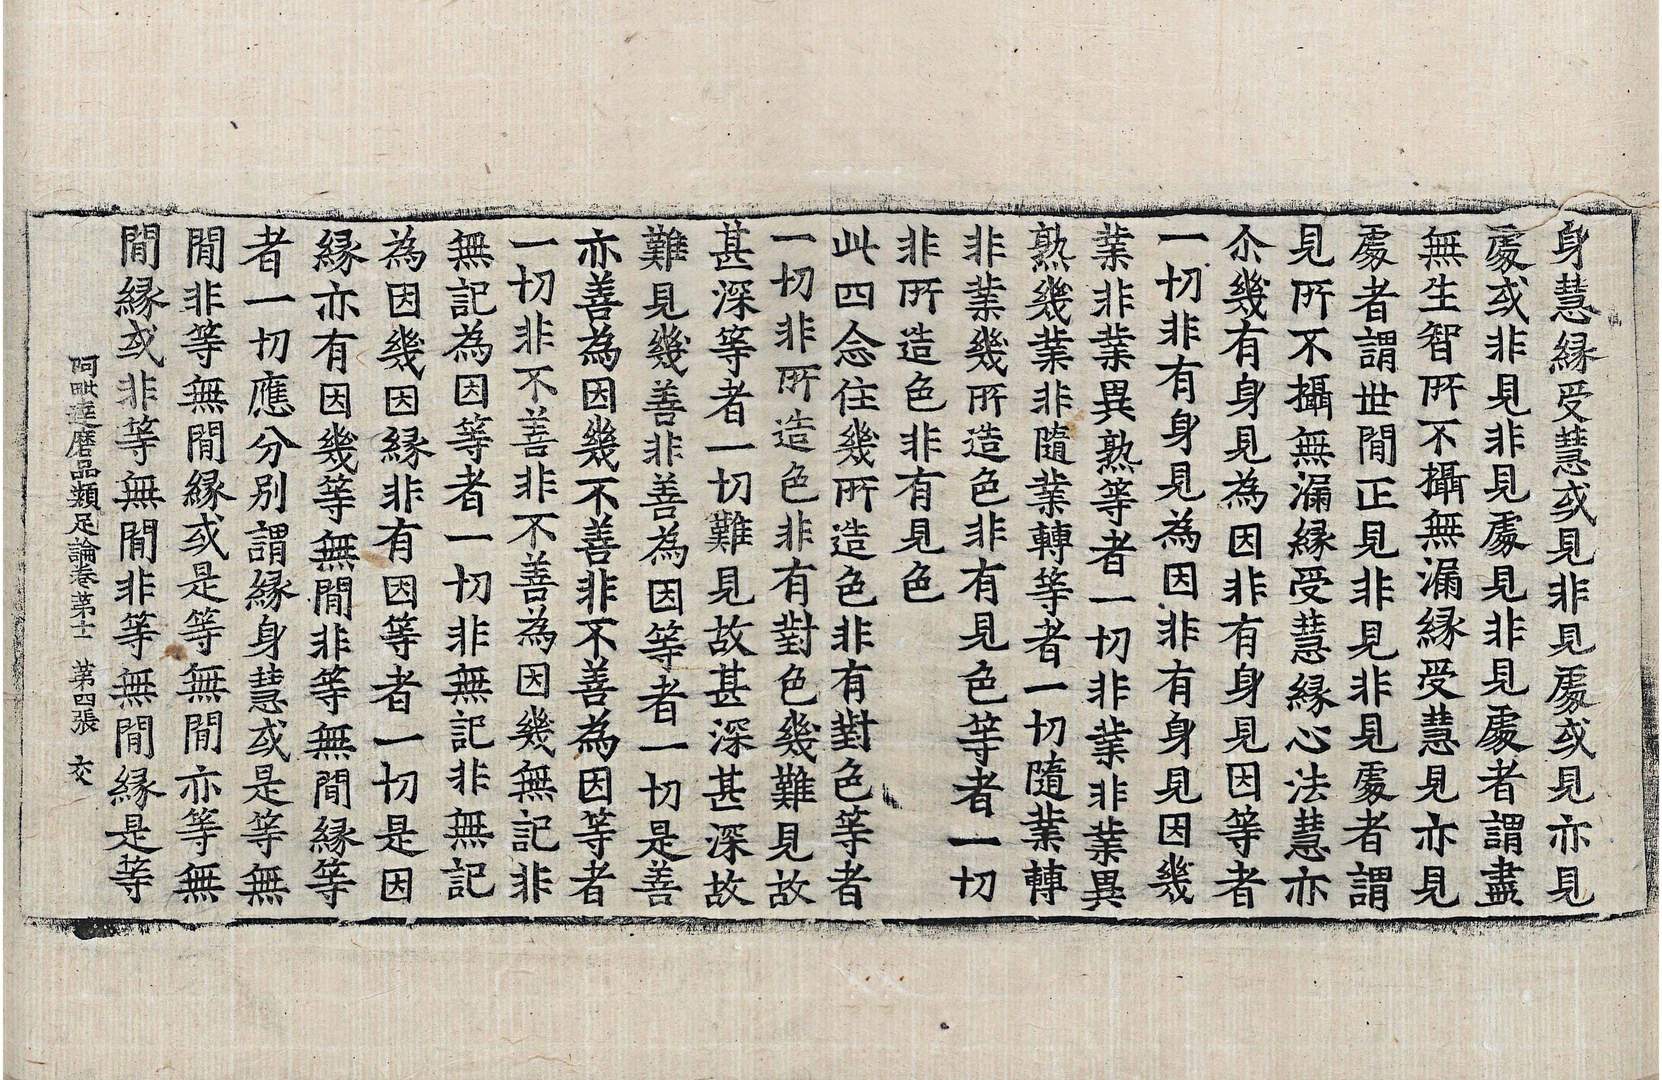 身慧緣受慧或見非見處或見亦見
處或非見非見處見非見處者謂盡
無生智所不攝無漏緣受慧見亦見
處者謂世間正見非見非見處者謂
見所不攝無漏緣受慧緣心法慧亦
尒幾有身見為因非有身見因等者
一切非有身見為因非有身見因幾
業非業異熟等者一切非業非業異
熟幾業非隨業轉等者一切隨業轉
非業幾所造色非有見色等者一切
非所造色非有見色
此四念住幾所造色非有對色等者
一切非所造色非有對色幾難見故
甚深等者一切難見故甚深甚深故
難見幾善非善為因等者一切是善
亦善為因幾不善非不善為因等者
一切非不善非不善為因幾無記非
無記為因等者一切非無記非無記
為因幾因緣非有因等者一切是因
緣亦有因幾等無間非等無間緣等
者一切應分別謂緣身慧或是等無
間非等無間緣或是等無間亦等無
間緣或非等無間非等無間緣是等
阿毗達磨品類足論卷第十一 第四張 交